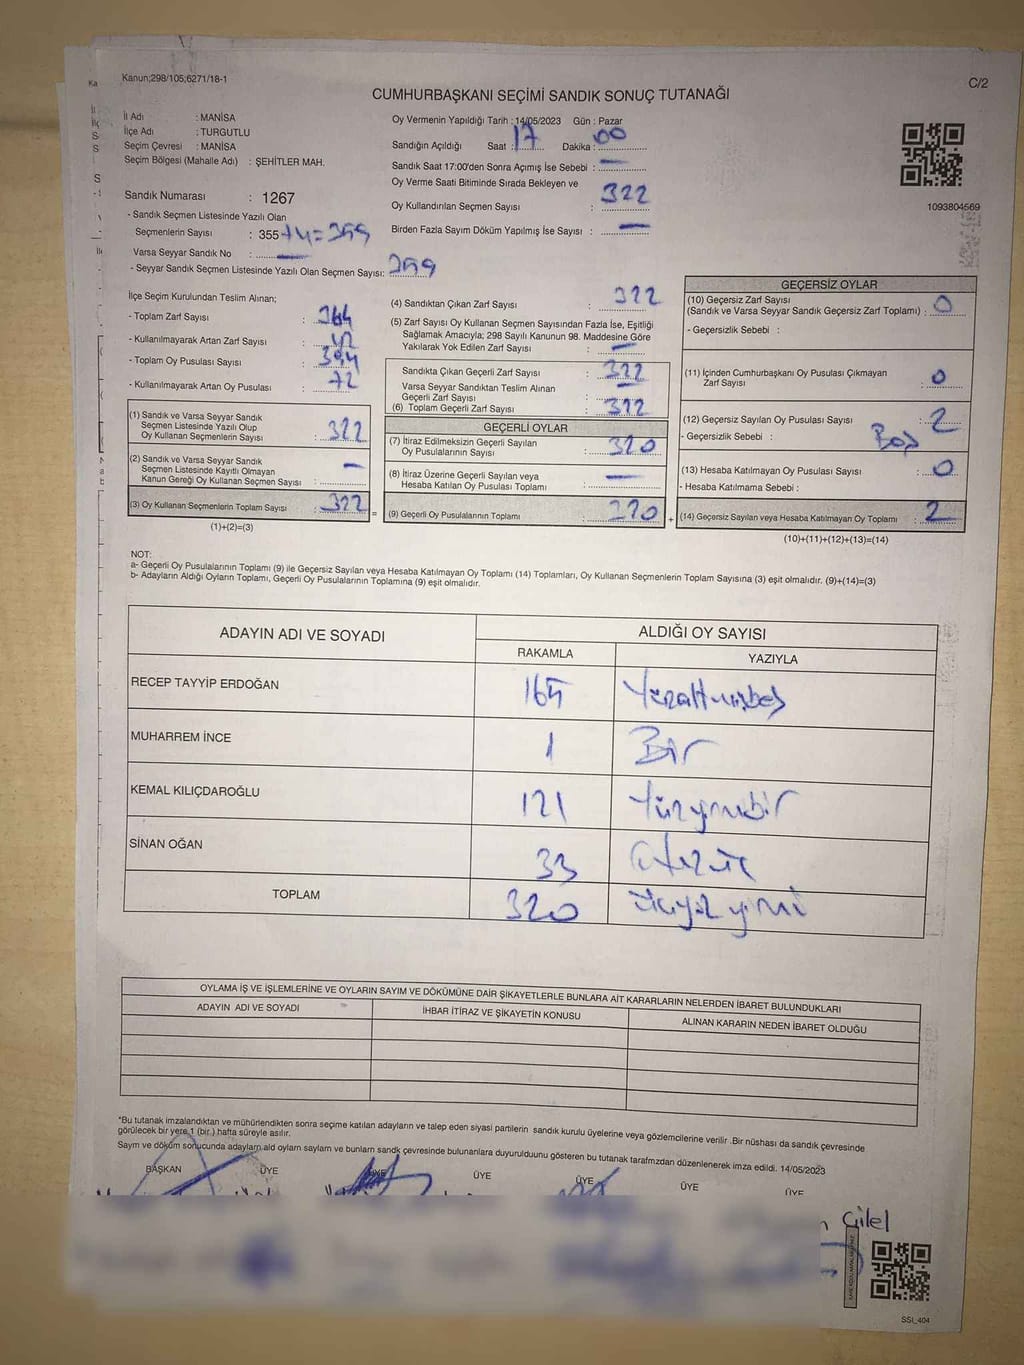 Kanun;298/105;6271/18-1
C/2
CUMHURBAŞKANI SEÇİMİ SANDIK SONUÇ TUTANAĞI
İl Adı : MANİSA
İlçe Adı : TURGUTLU
Seçim Çevresi : MANİSA
Seçim Bölgesi (Mahalle Adı) : ŞEHİTLER MAH.
Sandık Numarası : 1267
- Sandık Seçmen Listesinde Yazılı Olan
Seçmenlerin Sayısı : 355+4=359
Varsa Seyyar Sandık No :
- Seyyar Sandık Seçmen Listesinde Yazılı Olan Seçmen Sayısı: 359
Oy Vermenin Yapıldığı Tarih : 14/05/2023 Gün : Pazar
Sandığın Açıldığı Saat : 17 Dakika : 00
Sandık Saat 17:00'den Sonra Açımış İse Sebebi : —
Oy Verme Saati Bitiminde Sırada Bekleyen ve
Oy Kullandırılan Seçmen Sayısı : 322
Birden Fazla Sayım Döküm Yapılmış İse Sayısı : —
1093804569
İlçe Seçim Kurulundan Teslim Alınan;
- Toplam Zarf Sayısı : 364
- Kullanılmayarak Artan Zarf Sayısı : 42
- Toplam Oy Pusulası Sayısı : 394
- Kullanılmayarak Artan Oy Pusulası : 72
(1) Sandık ve Varsa Seyyar Sandık
Seçmen Listesinde Yazılı Olup
Oy Kullanan Seçmenlerin Sayısı : 322
(2) Sandık ve Varsa Seyyar Sandık
Seçmen Listesinde Kayıtlı Olmayan
Kanun Gereği Oy Kullanan Seçmen Sayısı : —
(3) Oy Kullanan Seçmenlerin Toplam Sayısı : 322
(1)+(2)=(3)
(4) Sandıktan Çıkan Zarf Sayısı : 322
(5) Zarf Sayısı Oy Kullanan Seçmen Sayısından Fazla İse, Eşitliği
Sağlamak Amacıyla; 298 Sayılı Kanunun 98. Maddesine Göre
Yakılarak Yok Edilen Zarf Sayısı : —
Sandıkta Çıkan Geçerli Zarf Sayısı : 322
Varsa Seyyar Sandıktan Teslim Alınan
Geçerli Zarf Sayısı : —
(6) Toplam Geçerli Zarf Sayısı : 322
GEÇERLİ OYLAR
(7) İtiraz Edilmeksizin Geçerli Sayılan
Oy Pusulalarının Sayısı : 320
(8) İtiraz Üzerine Geçerli Sayılan veya
Hesaba Katılan Oy Pusulası Toplamı : —
= (9) Geçerli Oy Pusulalarının Toplamı : 320
GEÇERSİZ OYLAR
(10) Geçersiz Zarf Sayısı
(Sandık ve Varsa Seyyar Sandık Geçersiz Zarf Toplamı) : 0
- Geçersizlik Sebebi :
(11) İçinden Cumhurbaşkanı Oy Pusulası Çıkmayan
Zarf Sayısı : 0
(12) Geçersiz Sayılan Oy Pusulası Sayısı : 2
- Geçersizlik Sebebi : Boş
(13) Hesaba Katılmayan Oy Pusulası Sayısı : 0
- Hesaba Katılmama Sebebi :
+ (14) Geçersiz Sayılan veya Hesaba Katılmayan Oy Toplamı : 2
(10)+(11)+(12)+(13)=(14)
NOT:
a- Geçerli Oy Pusulalarının Toplamı (9) ile Geçersiz Sayılan veya Hesaba Katılmayan Oy Toplamı (14) Toplamları, Oy Kullanan Seçmenlerin Toplam Sayısına (3) eşit olmalıdır. (9)+(14)=(3)
b- Adayların Aldığı Oyların Toplamı, Geçerli Oy Pusulalarının Toplamına (9) eşit olmalıdır.
ADAYIN ADI VE SOYADI
ALDIĞI OY SAYISI
RAKAMLA YAZIYLA
RECEP TAYYİP ERDOĞAN 165 Yüzaltmışbeş
MUHARREM İNCE 1 Bir
KEMAL KILIÇDAROĞLU 121 Yüzyirmibir
SİNAN OĞAN 33 otuzüç
TOPLAM 320 üçyüz yirmi
OYLAMA İŞ VE İŞLEMLERİNE VE OYLARIN SAYIM VE DÖKÜMÜNE DAİR ŞİKAYETLERLE BUNLARA AİT KARARLARIN NELERDEN İBARET BULUNDUKLARI
ADAYIN ADI VE SOYADI İHBAR İTİRAZ VE ŞİKAYETİN KONUSU ALINAN KARARIN NEDEN İBARET OLDUĞU
*Bu tutanak imzalandıktan ve mühürlendikten sonra seçime katılan adayların ve talep eden siyasi partilerin sandık kurulu üyelerine veya gözlemcilerine verilir .Bir nüshası da sandık çevresinde
görülecek bir yere 1 (bir.) hafta süreyle asılır.
Sayım ve döküm sonucunda adayların ald oyların sayılam ve bunların sandk çevresinde bulunanlara duyurulduunu gösteren bu tutanak tarafmzdan düzenlenerek imza edildi. 14/05/2023
BAŞKAN ÜYE ÜYE ÜYE ÜYE ÜYE ÜYE
Çilel
SSI_404